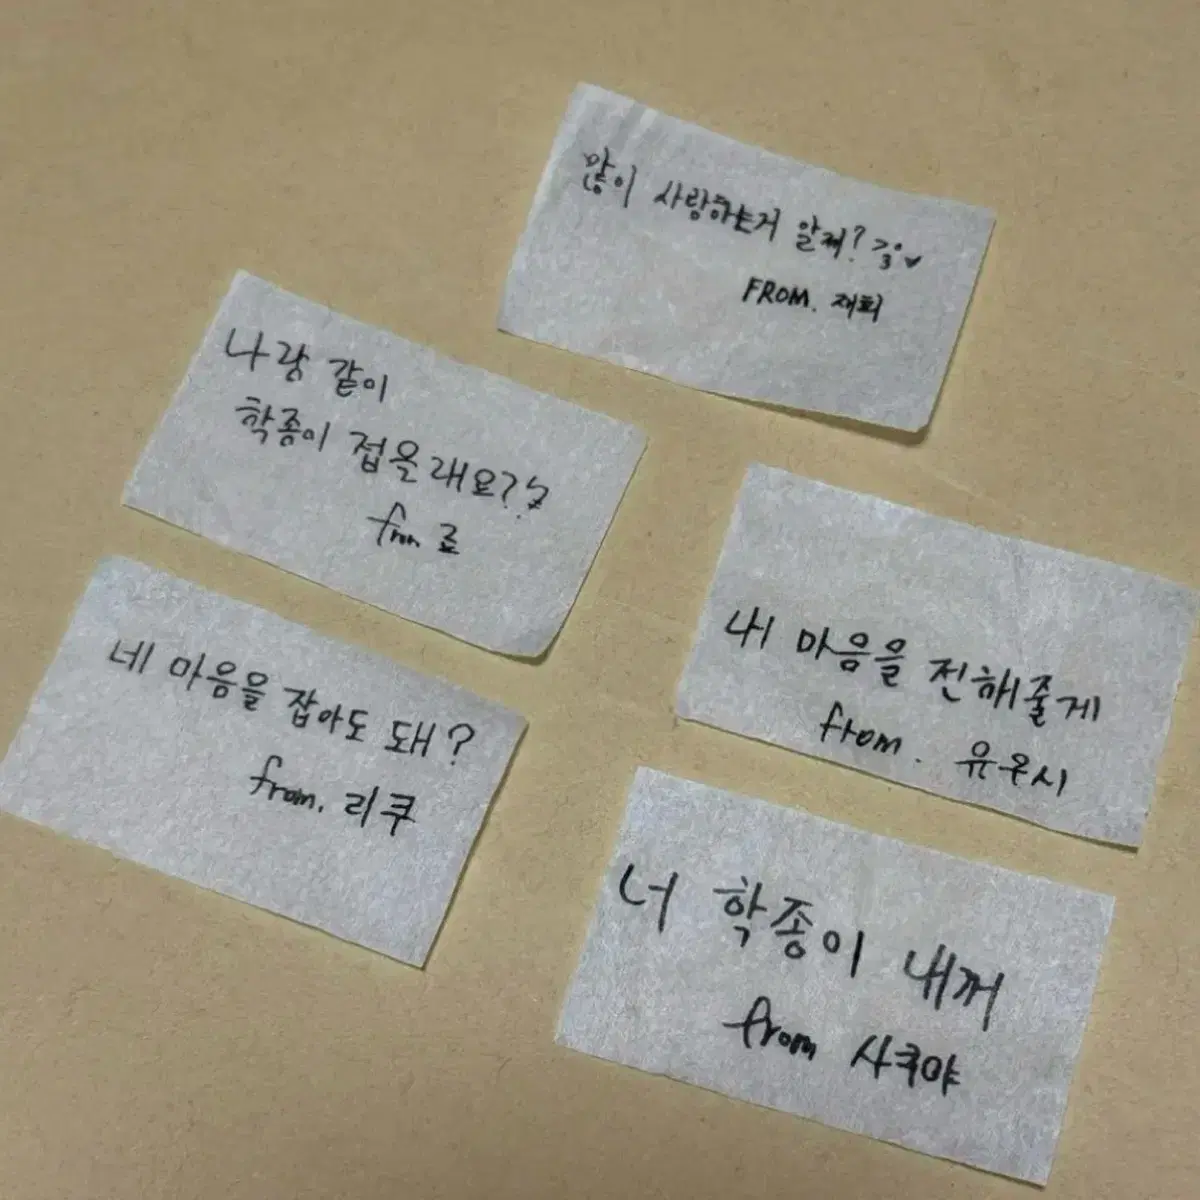 많이 사랑하는거 알제? >3° ♥
FROM. 재희
나랑 같이
학종이 접을래요?
from 료
네 마음을 잡아도 돼?
from. 리쿠
내 마음을 전해줄게
from. 유우시
너 학종이 내꺼
from 사쿠야